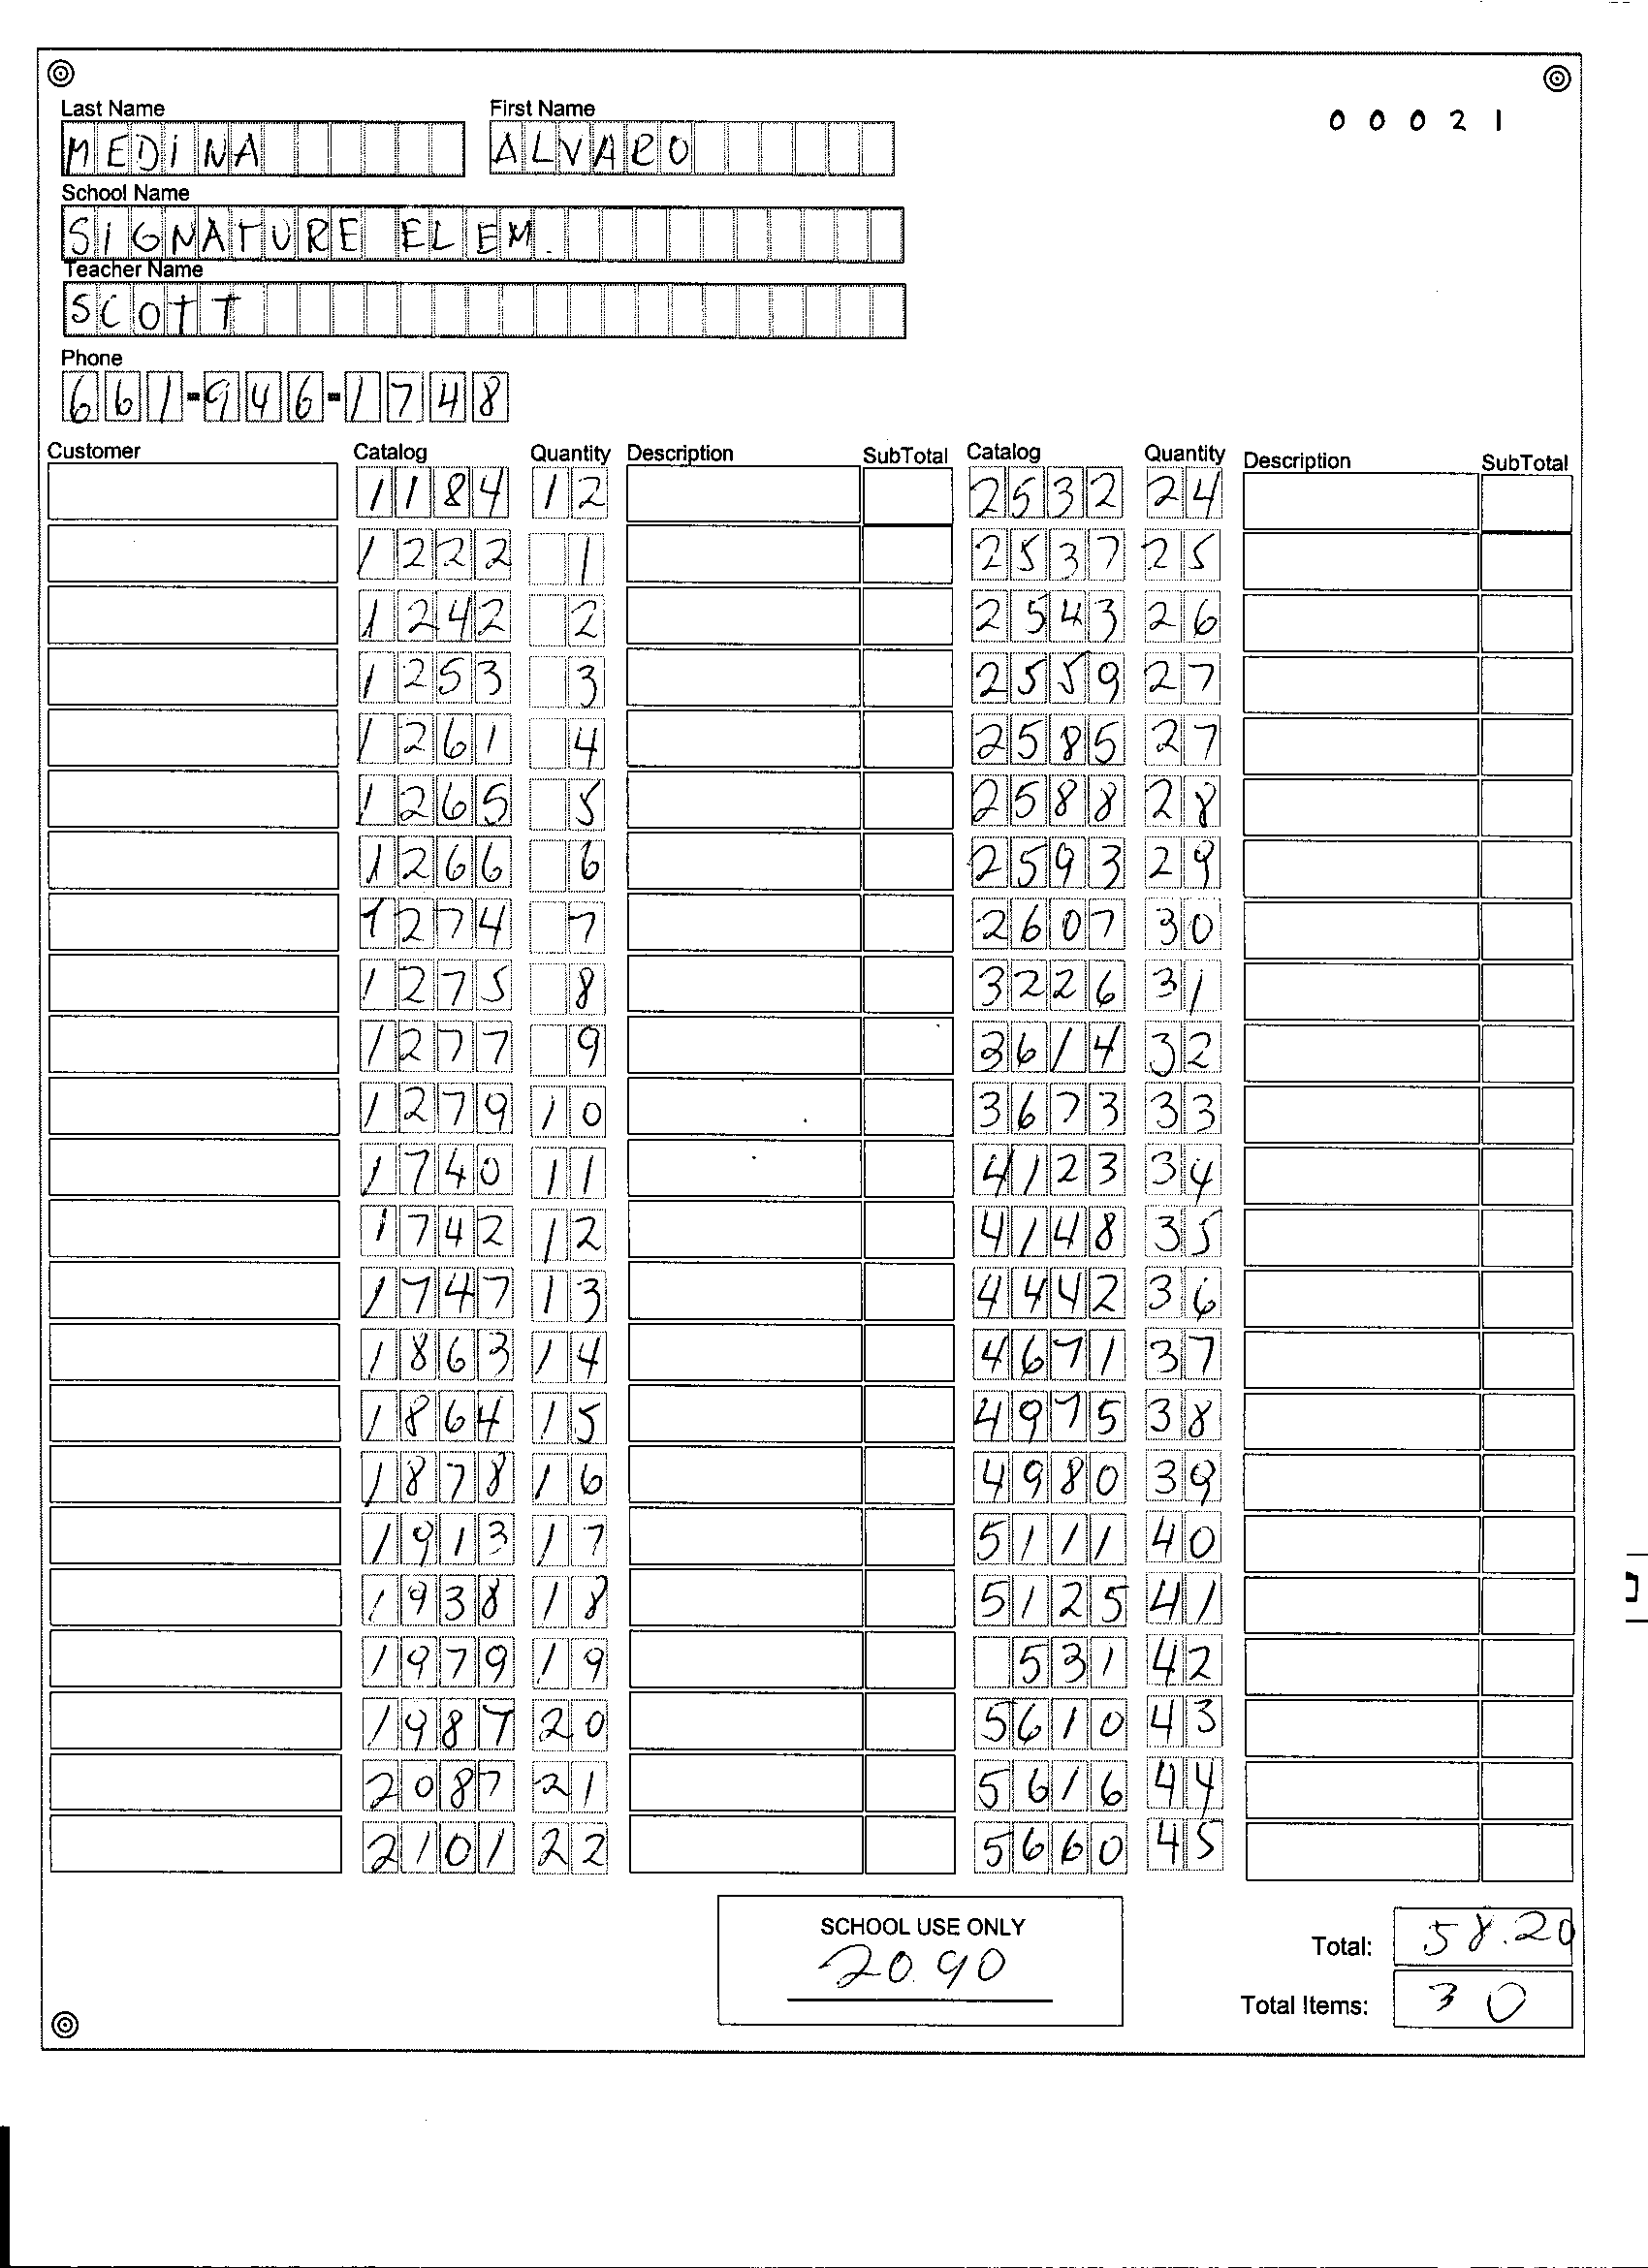 Last Name First Name
00021
MEDINA ALVARO
School Name
SIGNATURE ELEM.
Teacher Name
SCOTT
Phone
661-946-1748
Customer Catalog Quantity Description SubTotal Catalog Quantity Description SubTotal
1184 12 2532 24
1222 1 2537 25
1242 2 2543 26
1253 3 2559 27
1261 4 2585 27
1265 5 2588 28
1266 6 2593 29
1274 7 2607 30
1275 8 3226 31
1277 9 3614 32
1279 10 3673 33
1740 11 4123 34
1742 12 4148 35
1747 13 4442 36
1863 14 4671 37
1864 15 4975 38
1878 16 4980 39
1913 17 5111 40
1938 18 5125 41
1979 19 531 42
1987 20 5610 43
2087 21 5616 44
2101 22 5660 45
SCHOOL USE ONLY
20.90
Total: 58.20
Total Items: 30